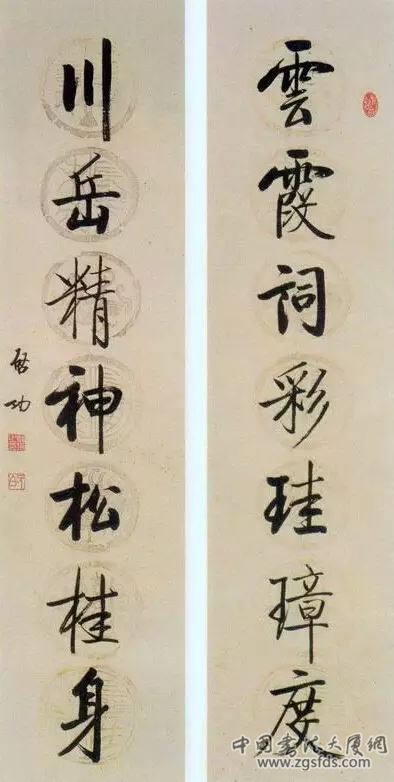 雲霞詞彩珪璋度
川岳精神松桂身
啓功
中国书法大厦網
www.zgsfds.com